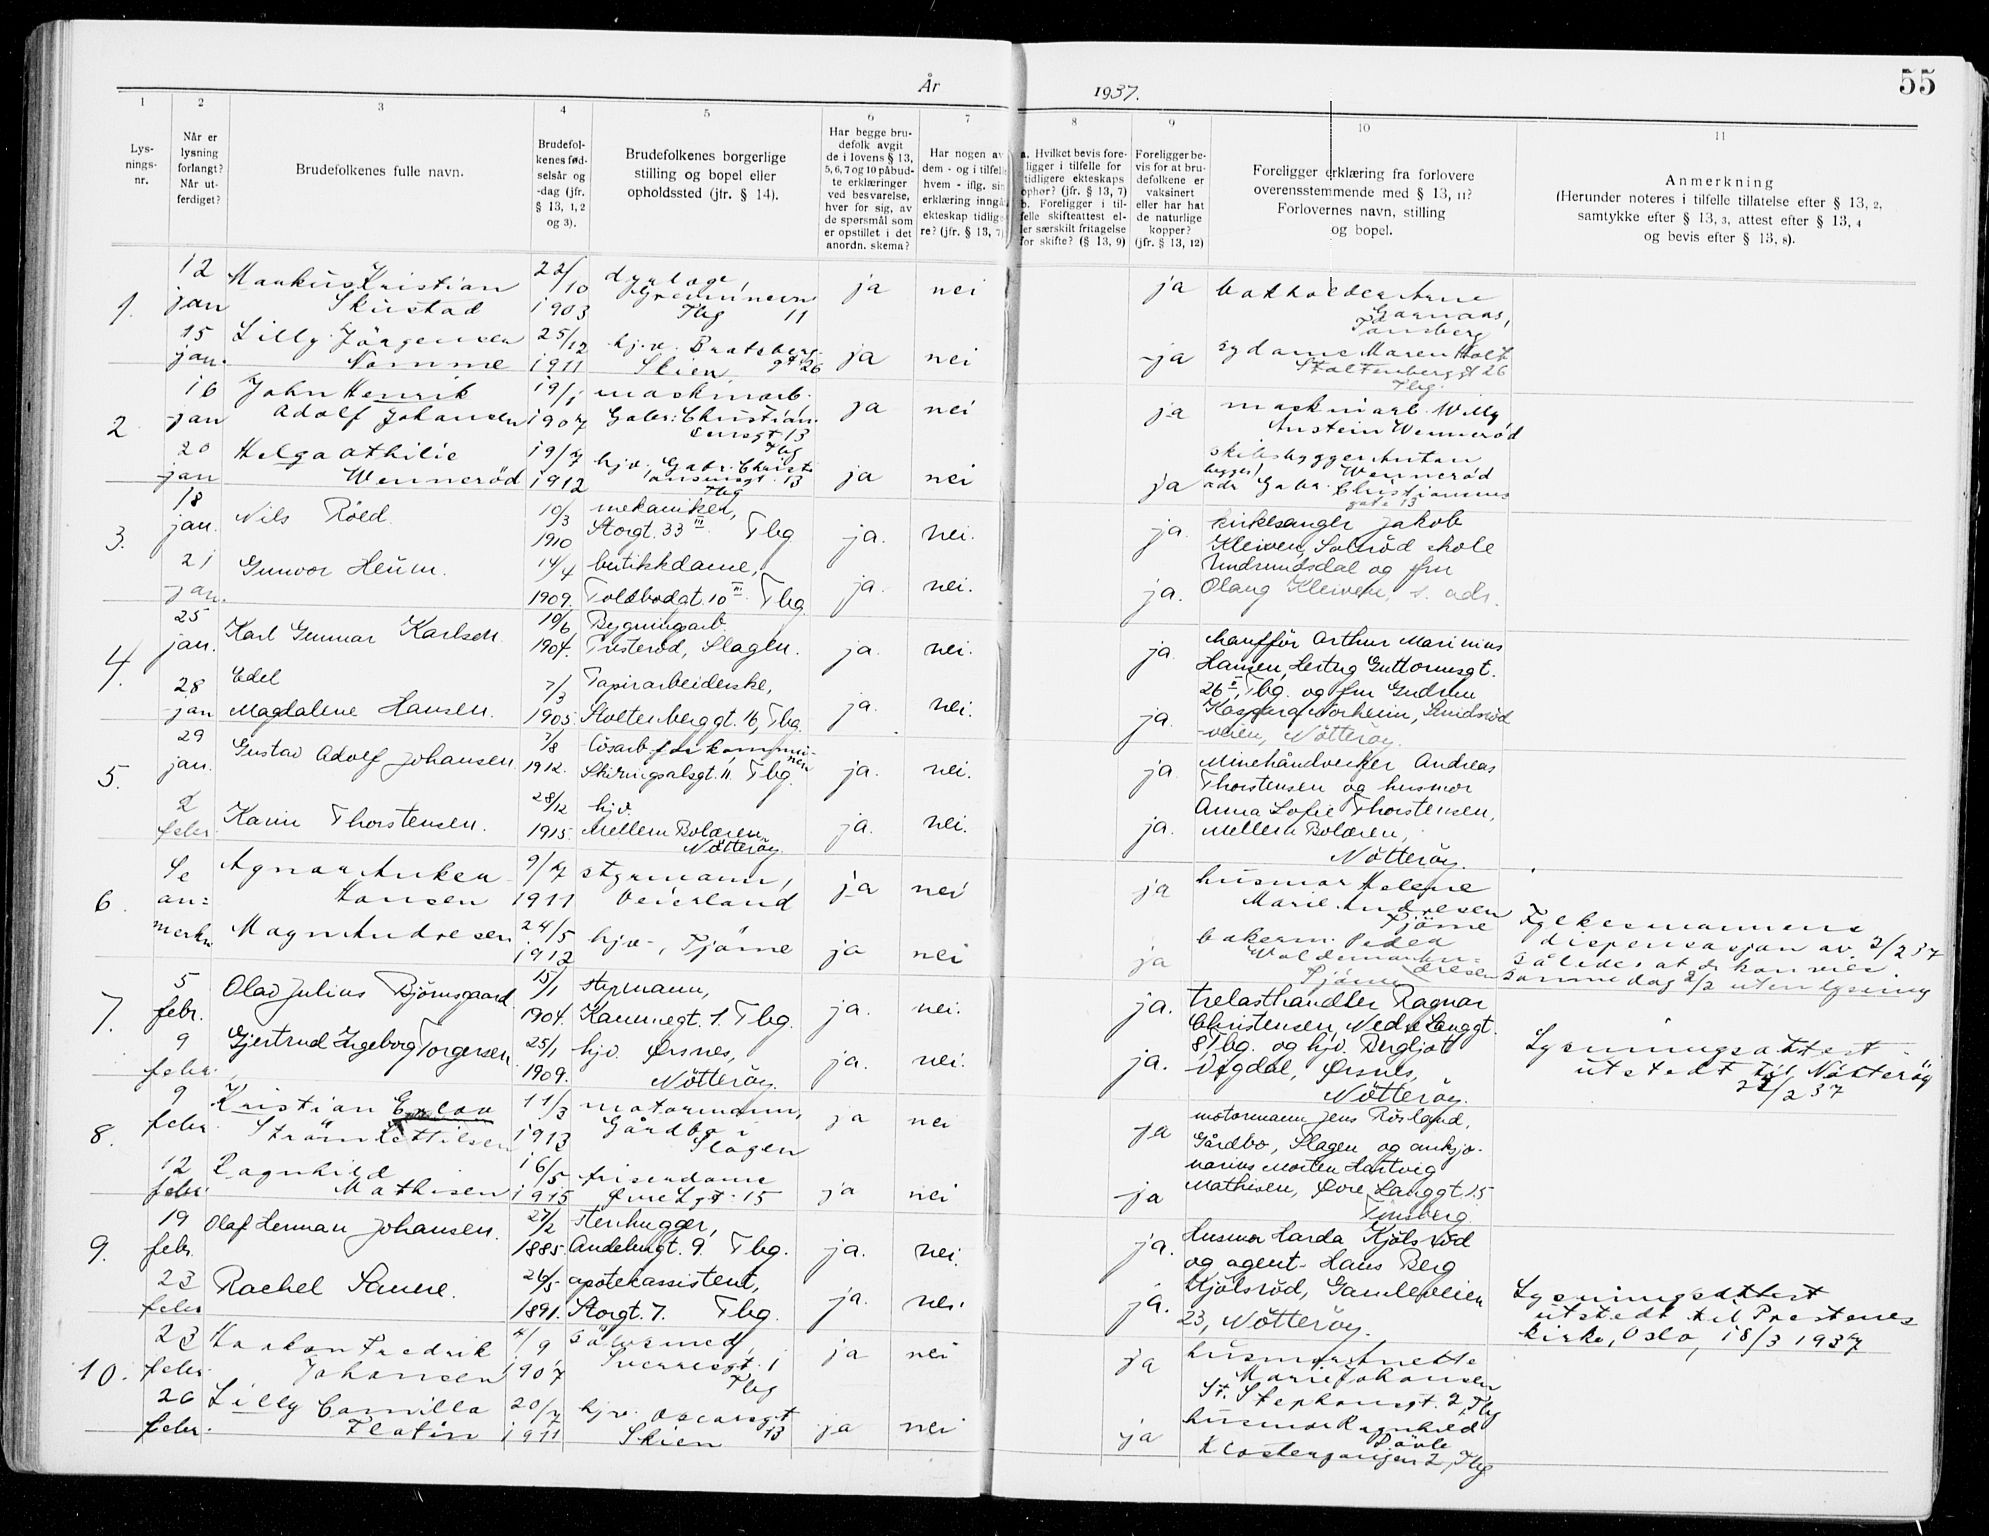 År 1937.
55
1 2 3 4 5 6 7 8 9 10 11
Lys-
nings-
nr.
Når er
lysning
forlangt?
Når ut-
ferdiget?
Brudefolkenes fulle navn.
Brudefol-
kenes fød-
selsår og
-dag (jfr.
§ 13, 1, 2
og 3).
Brudefolkenes borgerlige
stilling og bopel eller
opholdssted (jtr. § 14).
Har begge bru-
defolk avgit
de i lovens § 13,
5, 6, 7 og 10 påbud-
te erklæringer
ved besvarelse,
hver for sig, av
de spørsmål som
er opstillet i det
anordn. skema?
Har nogen av
dem - og i tilfelle
hvem - iflg. sin
erklæring inngå
ekteskap tidlige
re? (jfr. § 13, 7)
a. Hvilket bevis fore-
ligger i tilfelle for
tidligere ekteskaps
ophør? (jfr. § 13, 7)
b. Foreligger i til-
felle skifteattest el-
ler særskilt fritagelse
for skifte? (§ 13, 9)
Foreligger be-
vis for at bru-
defolkene er
vaksinert
eller har hat
de naturlige
kopper?
(jfr. § 13, 12)
Foreligger erklæring fra forlovere
overensstemmende med § 13, 11?
Forlovernes navn, stilling
og bopel.
Anmerkning
(Herunder noteres i tilfelle tillatelse efter § 13, 2,
samtykke efter § 13, 3, attest efter § 13, 4
og bevis efter § 13, 8).
1.
12 jan
Markus Kristian
Skustad
22/10 1903
dyrlæge,
Tbg 11
ja nei ja
bokholder Arne
Garnaas,
Tønsberg
15 jan.
Lilly Jörgensen
Nomme
25/12 1911
hjv. Bratsberg-
Skien, gt 26
ja nei ja
sydame Maren Holt
Stoltenberggt 26
Tbg.
2
16 jan
John Henrik
Adolf Johansen
19/1 1907
maskinarb.
Gabr. Christian-
sensgt. 13
Tbg
ja nei ja
maskinarb. Willy
Anstein Wennerød
20 jan
Helga Othilie
Wennerød
19/7 1912
hjv., Gabr. Christi
ansensgt. 13
Tbg
ja nei ja
skibsbygger Anton
Wennerød
begges
adr Gabr. Christiansens
gate 13
3.
18 jan.
Nils Röed.
10/3 1910
mekaniker,
Storgt. 33 III Tbg
ja. nei. ja.
kirkesanger Jakob
Kleiven, Solerød skole
Undrumsdal og fru
21 jan.
Gunvor Heum.
14/4 1909.
butikkdame,
Toldbodgt. 10 III Tbg.
ja. nei. ja.
Olaug Kleiven, s. adr.
4.
25 jan.
Karl Gunnar Karlsen.
19/6 1904.
Bygningsarb.
Presterød, Slagen.
ja. nei. ja.
chaufför Arthur Marinius
Hansen, Hertug Guttormsgt.
26 II, Tbg. og fru Gudrun
28 jan
Edel
Magdalene Hansen.
7/3 1905.
Papirarbeiderske,
Stoltenberggt. 16, Tbg.
ja. nei. ja.
Kaspara Norheim, Smidsrød
-veien, Nötteröy.
5.
29 jan.
Gustav Adolf Johansen.
7/8 1912.
lösarb. for kommu-
nen
Skiringsalsgt. 11. Tbg.
ja. nei. ja.
Minehåndverker Andreas
Thorstensen og husmor
2 febr
Karin Thorstensen.
28/12 1915.
hjv.
Mellem Bolæren,
Nötteröy.
ja. nei. ja.
Anna Sofie Thorstensen,
Mellem Bolæren,
Nötteröy.
6.
Se
an=
merkn
Agnar Anker
Hansen
9/7 1911
styrmann,
Veierland
ja nei ja
husmor Helene
Marie Andresen
Tjöme
Magn Andresen
24/5 1912
hjv-, Tjöme
ja nei ja
bakerm. Peder
Valdemar An-
dresen
Tjöme
Fylkesmannens
dispensasjon av 2/2 37
således at de kan vies
samme dag 2/2 uten lysning
7.
5 febr.
Olav Julius Björnsgaard
15/1 1904.
styrmann,
Kammegt. 1. Tbg.
ja. nei. ja.
trelasthandler Ragnar
Christensen, Nedre Langgt.
9 febr.
Gjertrud Ingeborg Torgersen.
25/1 1909.
hjv. Ørsnes,
Nötteröy.
ja. nei. ja.
8 Tbg. og hjv. Bergljot
Vigdal, Ørsnes,
Nötteröy.
Lysningsattest
utstedt til Nötteröy
22/2 37
8.
9 febr
Kristian Enlov
Ström Kettilsen
11/3 1913
motormann,
Gårdbo i
Slagen
ja nei ja
motormann Jens Rösland,
Gårdbo, Slagen og auksjo-
narius Morten Hartvig
12 febr.
Ragnhild
Mathisen
16/5 1915
frisørdame
Øvre Lgt. 15
ja nei ja
Mathisen, Øvre Langgt. 15
Tönsberg.
9.
19 febr.
Olaf Herman Johansen.
27/2 1885.
stenhugger,
Andebugt. 9. Tbg.
ja. nei. ja.
Husmor Harda Kjölsröd
og agent Hans Berg
23 febr
Rachel Sanne.
26/5 1891.
apotekassistent,
Storgt. 7. Tbg.
ja. nei. ja.
Kjölsröd, Gamleveien
23, Nötteröy.
Lysningsattest
utstedt til Prestenes
kirke, Oslo, 18/3 1937
10.
23 febr.
Haakon Fredrik
Johansen
4/9 1907
sölvsmed,
Sverresgt. 1
Tbg
ja nei ja
husmor Anette
Marie Johansen
St. Stephansgt. 2, Tbg
26 febr.
Lilly Camilla
Flatin
20/7 1911
hjv. Oscarsgt
13
Skien
ja nei ja
husmor Ragnhild
Klostergangen 2, Tbg